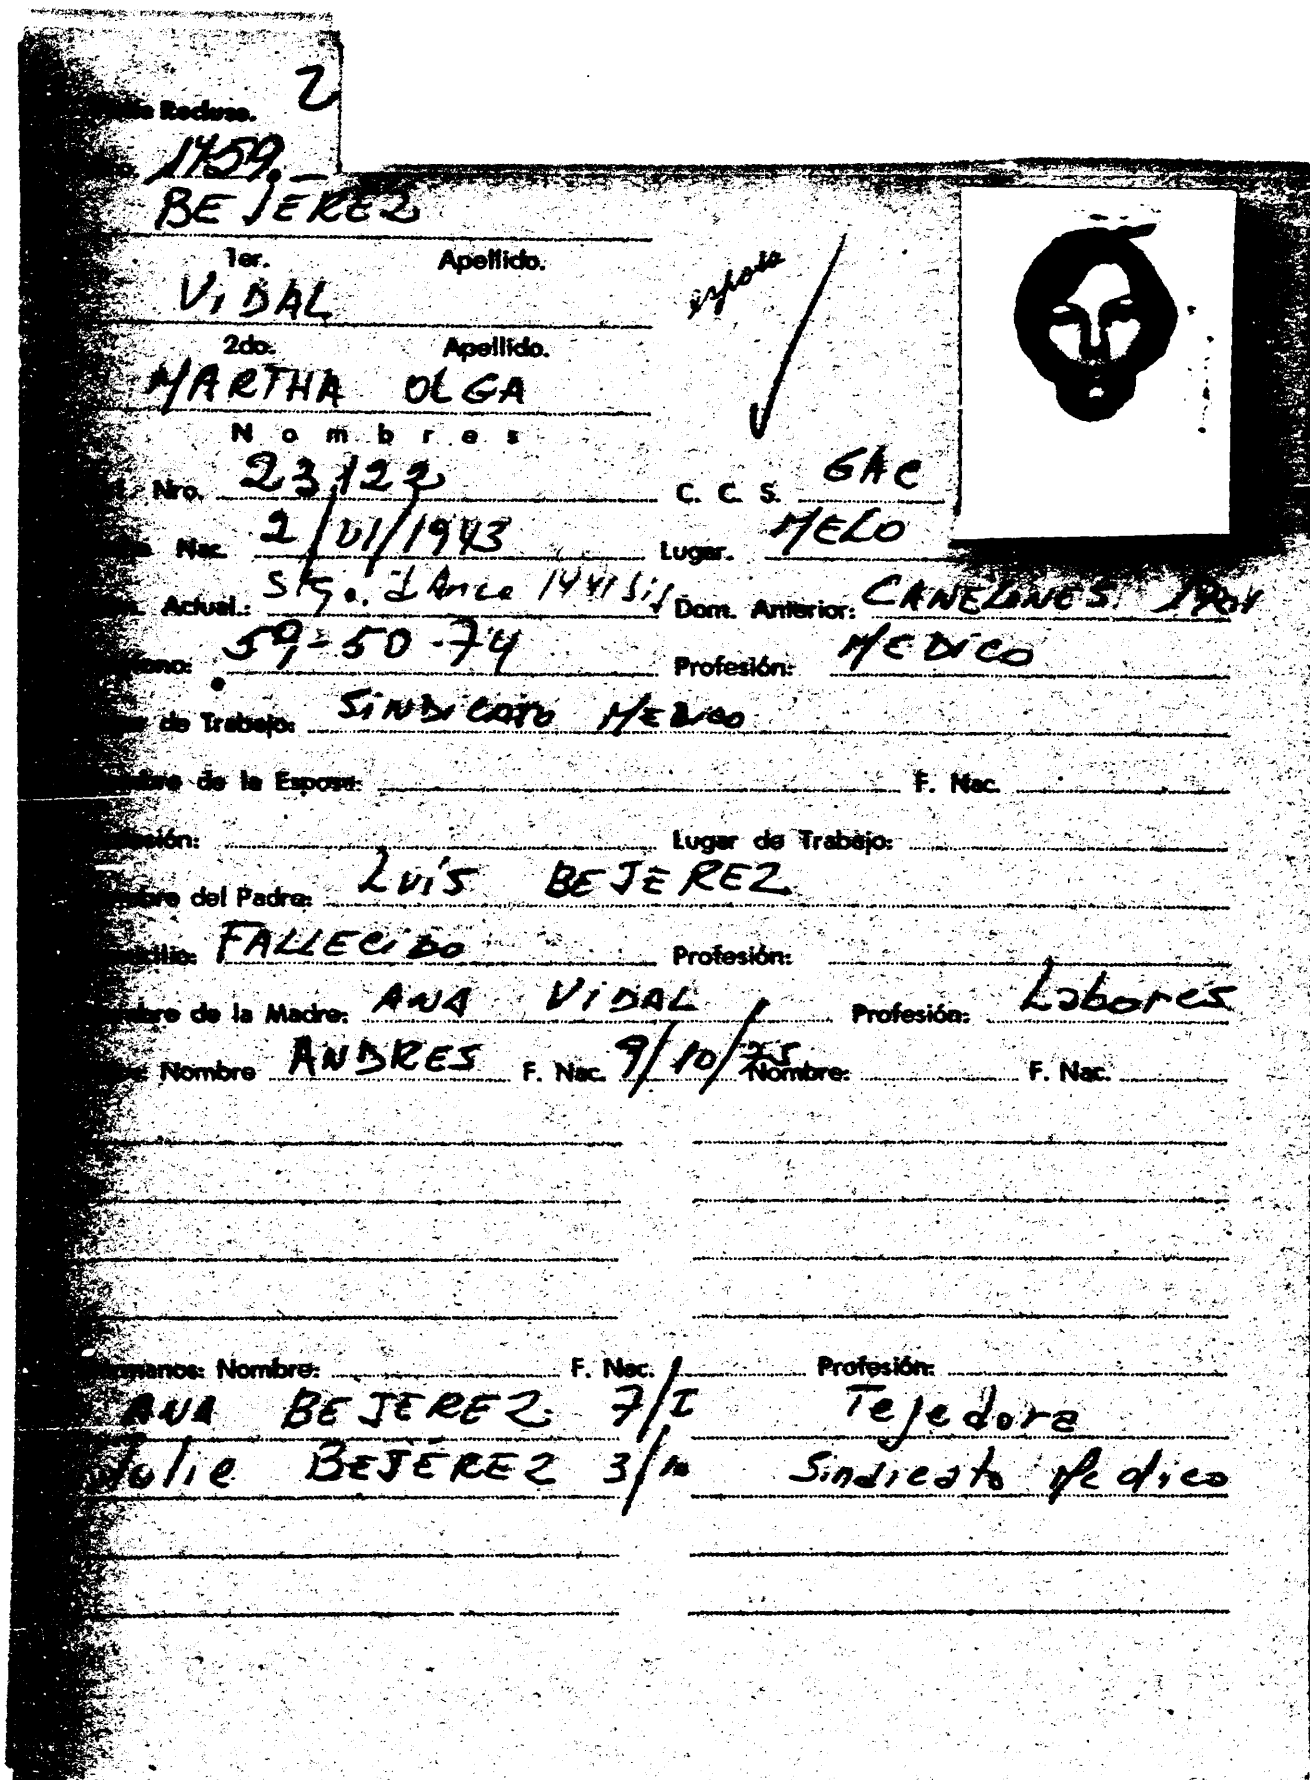 2
Recluso.
1459.
BEJEREZ
1er. Apellido.
VIDAL
esposa
2do. Apellido.
MARTHA OLGA
Nombres
Nro. 23.122 C. C. S. GAC
Nac. 2/VI/1943 Lugar. MELO
Actual.: Stgo. 1441 Dom. Anterior: CANELONES
59-50-74 Profesión: MEDICO
de Trabajo: SINDICATO MEDICO
de la Esposa: F. Nac.
Lugar de Trabajo:
del Padre: Luis BEJEREZ
FALLECIDO Profesión:
de la Madre: ANA VIDAL Profesión: Labores
Nombre ANDRES F. Nac. 9/10/75 Nombre: F. Nac.
Nombre: F. Nac. Profesión:
ANA BEJEREZ 7/I Tejedora
BEJÉREZ 3/ Sindicato Medico